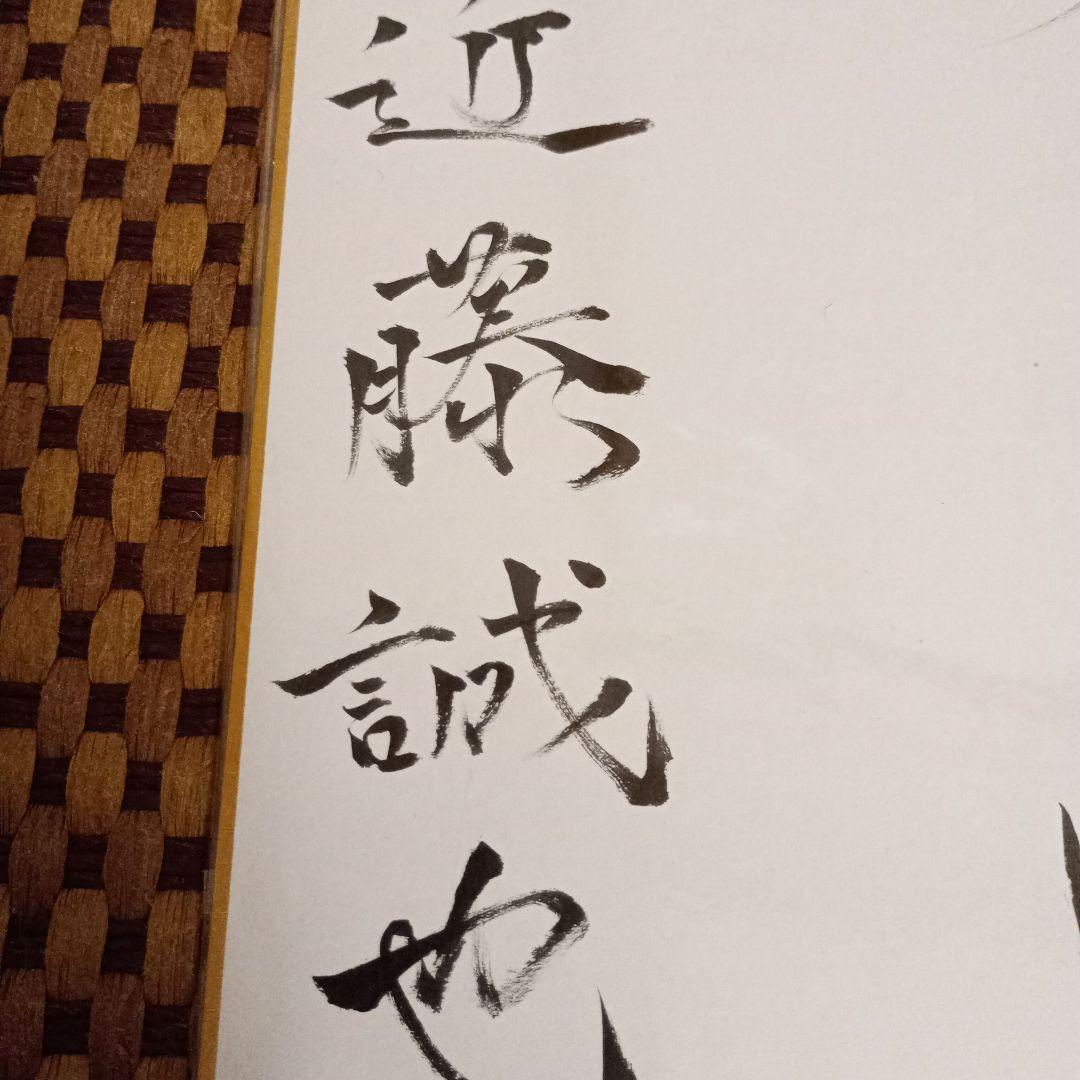 近藤誠也